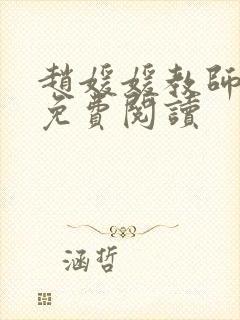 趙媛媛教師
免費閱讀
涵哲